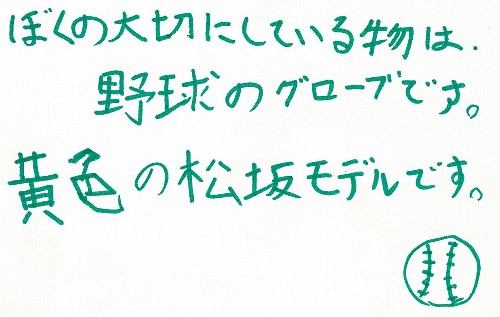 ぼくの大切にしている物は.
野球のグローブです。
黄色の松坂モデルです。